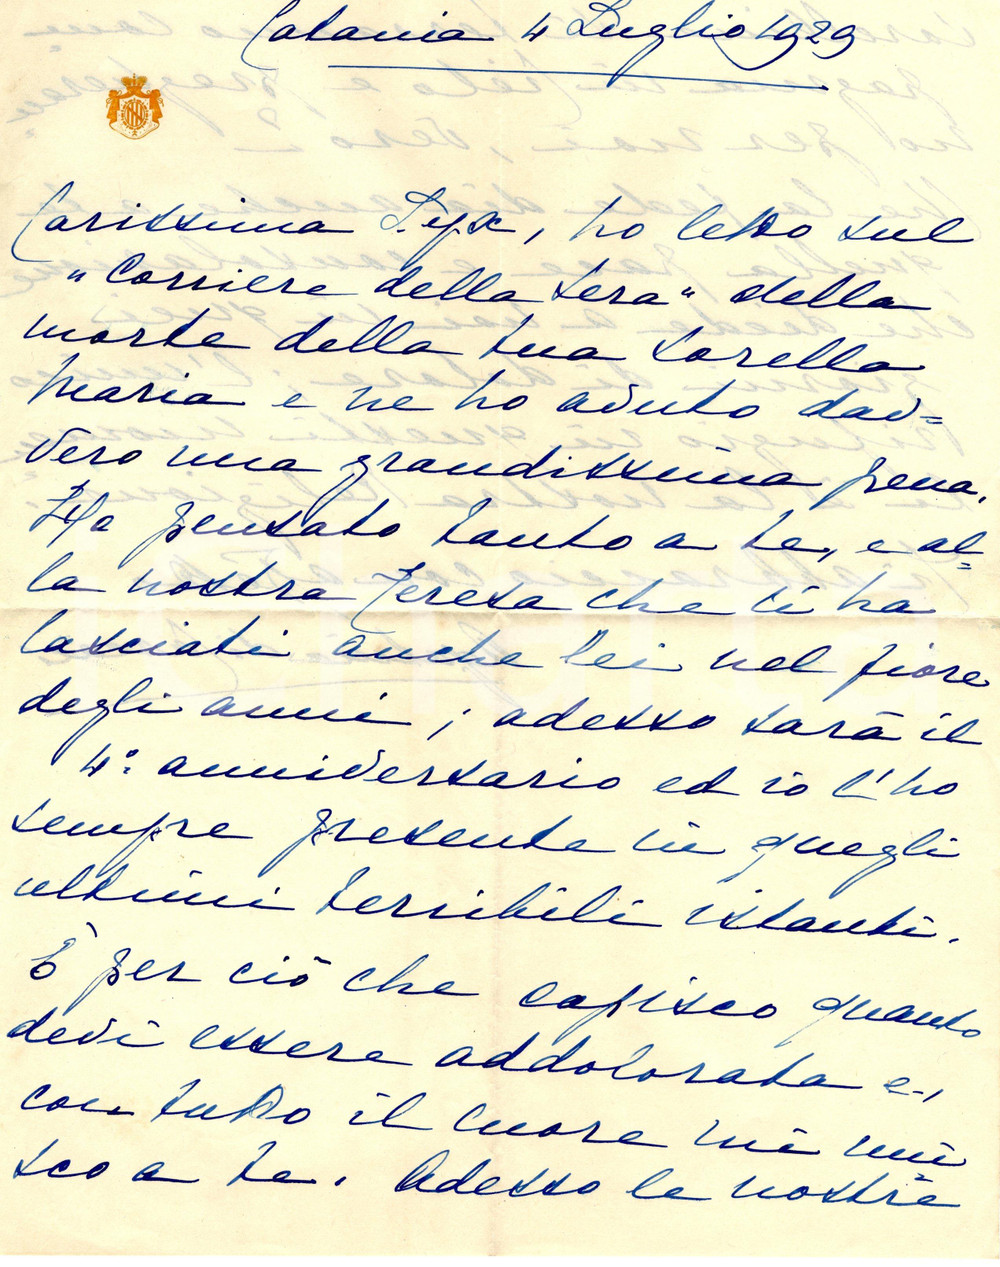 Catania 4 Luglio 1929
Carissima Lyx, ho letto sul
"Corriere della Sera" della
morte della tua sorella
Maria e ne ho avuto dav=
vero una grandissima pena.
Ho pensato tanto a te, e al=
la nostra Teresa che ci ha
lasciati anche lei nel fiore
degli anni; adesso sarà il
4° anniversario ed io l'ho
sempre presente in quegli
ultimi terribili istanti.
È per ciò che capisco quanto
devi essere addolorata e,
con tutto il cuore mi uni
sco a te. Adesso le nostre